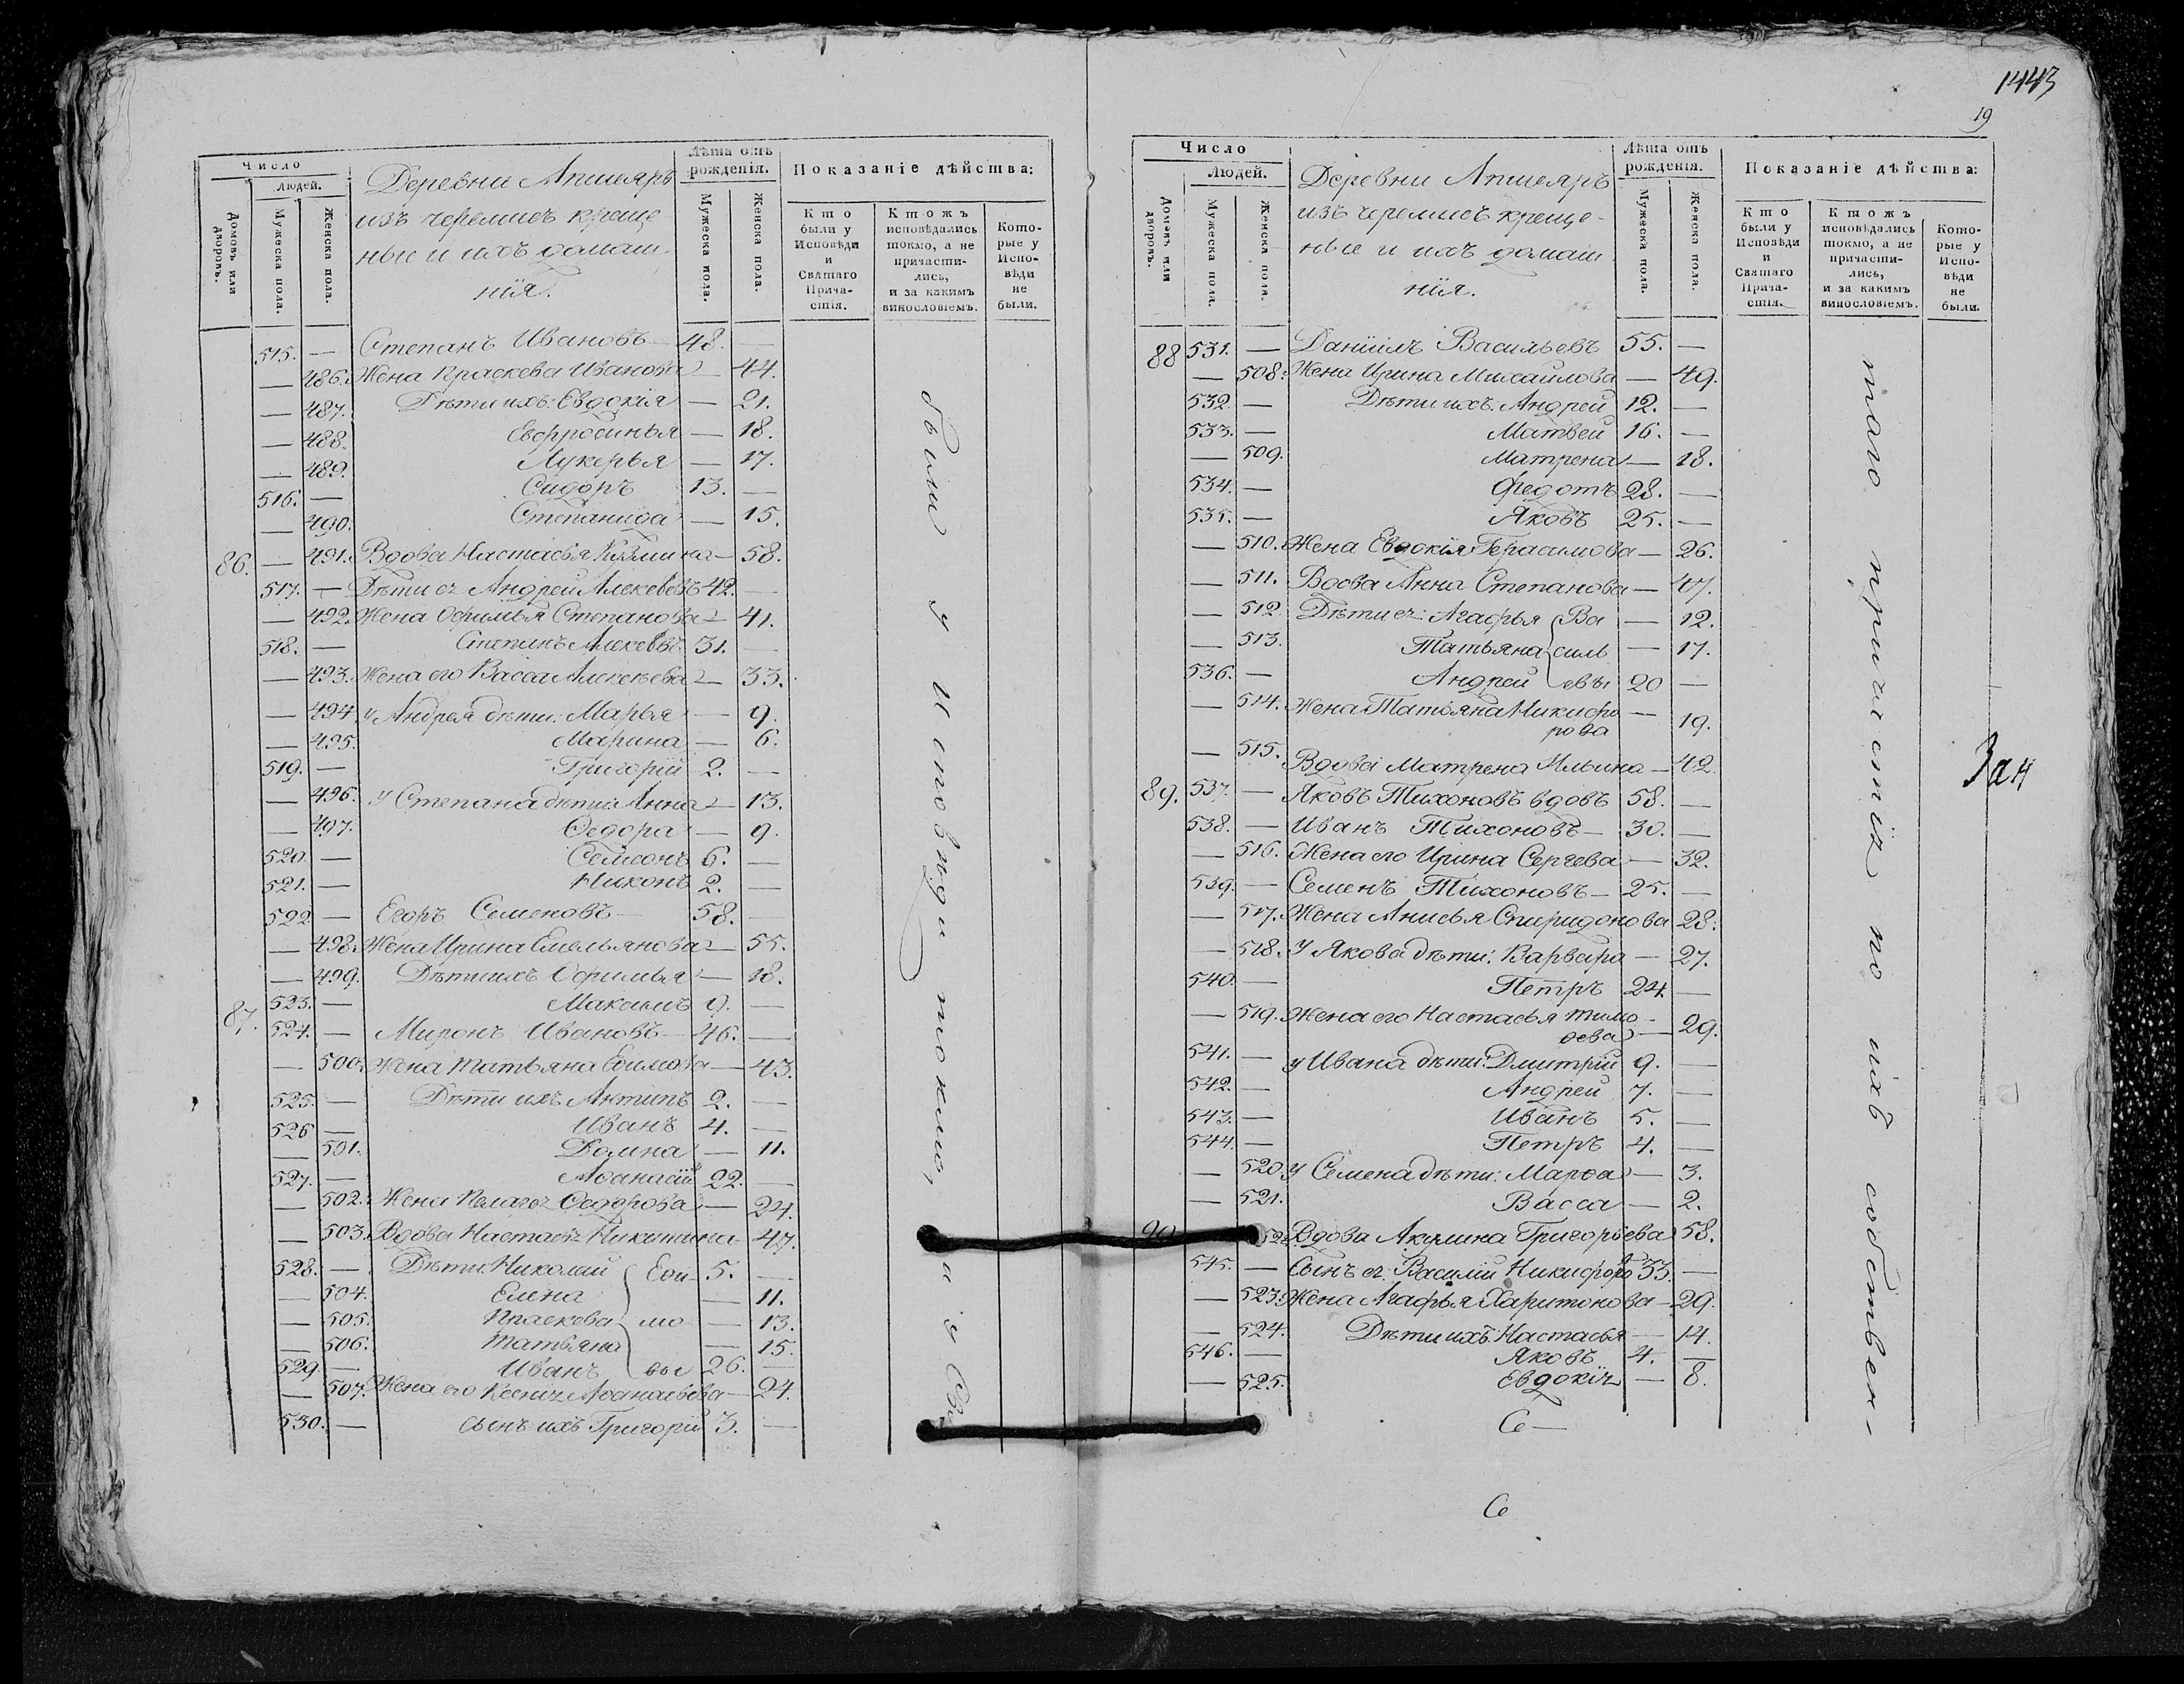 Число
Людей.
Домовъ или дворовъ.
Мужеска пола.
Женска пола.
Деревни Апшеяръ
изъ черемисъ креще-
ные и ихъ домаш-
нія.
Лѣта отъ рожденія.
Мужеска пола.
Женска пола.
Показаніе дѣйства:
Кто были у Исповѣди и Святаго Прича-стія.
Ктожъ исповѣдались токмо, а не причасти-лись, и за какимъ винословіемъ.
Кото-рые у Испо-вѣди не были.
515. — Степанъ Ивановъ — 48. —
— 486. Жена Праскева Иванова — 44.
— 487. Дѣти ихъ: Евдокія — 21.
— 488. Евфросинья — 18.
— 489. Лукерья — 17.
516. — Сидоръ 13. —
— 490. Степанида — 15.
86. — 491. Вдова Настасья Кузмина — 58.
517. — Дѣти ея Андрей Алексѣевъ 42. —
— 492. Жена Офимья Степанова — 41.
518. — Степанъ Алексѣевъ 31. —
— 493. Жена его Васса Алексѣева — 33.
— 494. у Андрея дѣти: Марья — 9.
— 495. Марина — 6.
519. — Григорій 2. —
— 496. У Степана дѣти Анна — 13.
— 497. Ѳедора — 9.
520. — Семіонъ 6. —
521. — Никонъ 2. —
522 — Егоръ Семеновъ — 58. —
— 498. Жена Ирина Емельянова — 55.
— 499. Дѣти ихъ Офимья — 18.
523. — Максимъ 9. —
87. 524. — Миронъ Ивановъ — 46. —
— 500. Жена Татьяна Ефимова — 43.
525. — Дѣти ихъ Антипъ 2. —
526 — Иванъ 4. —
— 501. Домна — 11.
527. — Аѳанасій 22. —
— 502. Жена Пелагея Ѳедорова — 24.
— 503. Вдова Настасья Никитина 47.
528. — Дѣти: Николай Еѳи- 5. —
— 504. Елена — 11.
— 505. Праскева мо- — 13.
— 506. Татьяна — 15.
529. — Иванъ вы 26. —
— 507. Жена его Ксенія Аѳанасьева — 24.
530. — сынъ ихъ Григорій 3. —
были у Исповѣди токмо, а у Св:
1443
19
Число
Людей.
Домовъ или дворовъ.
Мужеска пола.
Женска пола.
Деревни Апшеяръ
изъ черемисъ креще-
ные и ихъ домаш
нія.
Лѣта отъ рожденія.
Мужеска пола.
Женска пола.
Показаніе дѣйства:
Кто были у Исповѣди и Святаго Прича-стія.
Ктожъ исповѣдались токмо, а не причасти-лись, и за какимъ винословіемъ.
Кото-рые у Испо-вѣди не были.
88 531. — Даніилъ Васильевъ 55. —
— 508. Жена Ирина Михайлова — 49.
532. — Дѣти ихъ: Андрей 12. —
533. — Матвей 16. —
— 509. Матрена — 18.
534. — Федотъ 28. —
535. — Яковъ 25. —
— 510. Жена Евдокія Герасимова — 26.
— 511. Вдова Анна Степанова — 47.
— 512. Дѣти ея: Агафья Ва — 12.
— 513. Татьяна силь — 17.
536. — Андрей евы 20 —
— 514. Жена Татьяна Никифо
рова — 19.
— 515. Вдова Матрена Ильина — 42
89. 537. — Яковъ Тихоновъ вдовъ 58. —
538. — Иванъ Тихоновъ — 30. —
— 516. Жена его Ирина Сергева — 32.
539. — Семенъ Тихоновъ — 25. —
— 517. Жена Анисья Спиридонова 28.
— 518. У Якова дѣти: Варвара — 27.
540. — Петръ 24. —
— 519. Жена его Настасья Тимо-
ѳева — 29.
541. — у Ивана дѣти: Дмитрій 9. —
542. — Андрей 7. —
543. — Иванъ 5. —
544. — Петръ 4. —
— 520. у Семена дѣти: Марѳа — 3.
— 521. Васса — 2.
90 Вдова Акулина Григорьева 58.
545. — Сынъ ея: Василій Никифоро 33. —
— 523. Жена Агафья Харитонова — 29.
— 524. Дѣти ихъ: Настасья — 14.
546. — Яковъ 4. —
— 525. Евдокія — 8.
Се —
Се
таго причастія по ихъ собствен-
Зан